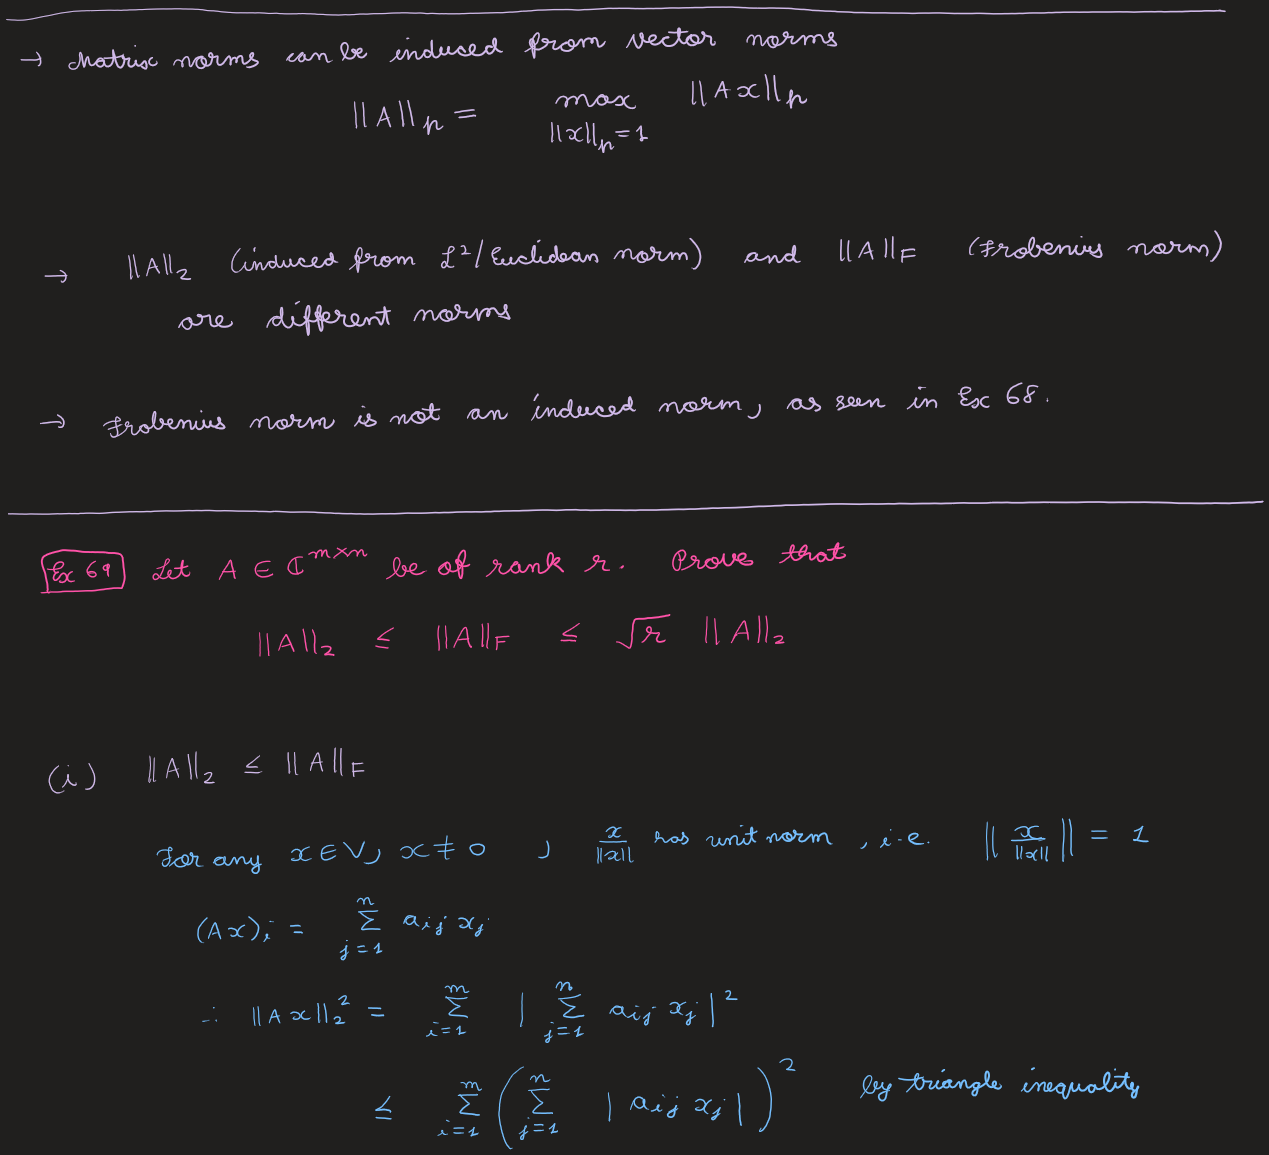 → Matrix norms can be induced from vector norms
||A||ₚ = max ||Ax||ₚ
||x||ₚ=1
→ ||A||₂ (induced from L²/Euclidean norm) and ||A||F (Frobenius norm)
are different norms
→ Frobenius norm is not an induced norm, as seen in Ex 68.
Ex 69 Let A ∈ ℂ^{m×n} be of rank r. Prove that
||A||₂ ≤ ||A||F ≤ √r ||A||₂
(i) ||A||₂ ≤ ||A||F
For any x ∈ V, x ≠ 0 , x/||x|| has unit norm , i.e. || x/||x|| || = 1
(Ax)ᵢ = ∑_{j=1}^{n} a_{ij} x_j
∴ ||Ax||₂² = ∑_{i=1}^{m} | ∑_{j=1}^{n} a_{ij} x_j |²
≤ ∑_{i=1}^{m} ( ∑_{j=1}^{n} | a_{ij} x_j | )² by triangle inequality